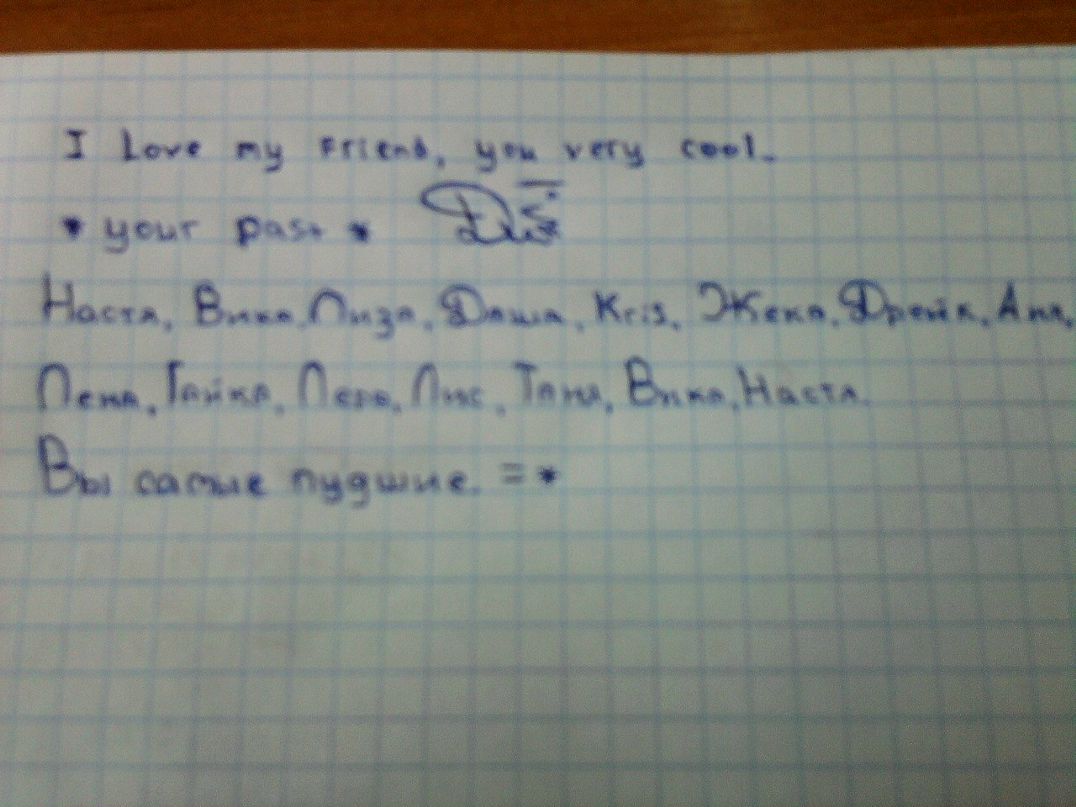 I Love my Friend, you very cool.
* your past *
Настя, Вика, Лиза, Даша, Kris, Жека, Дрейк, Аня,
Лена, Гайка, Лера, Лис, Таня, Вика, Настя.
Вы самые лудшие. =*